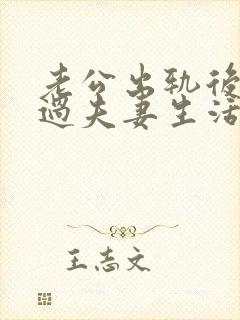 老公出轨後
過夫妻生活
王志文